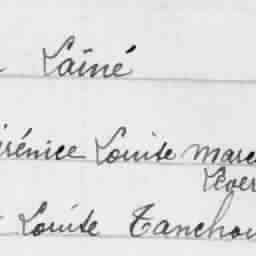 Lainé
érénice Louise Marc
Lever
Louise Tanchou